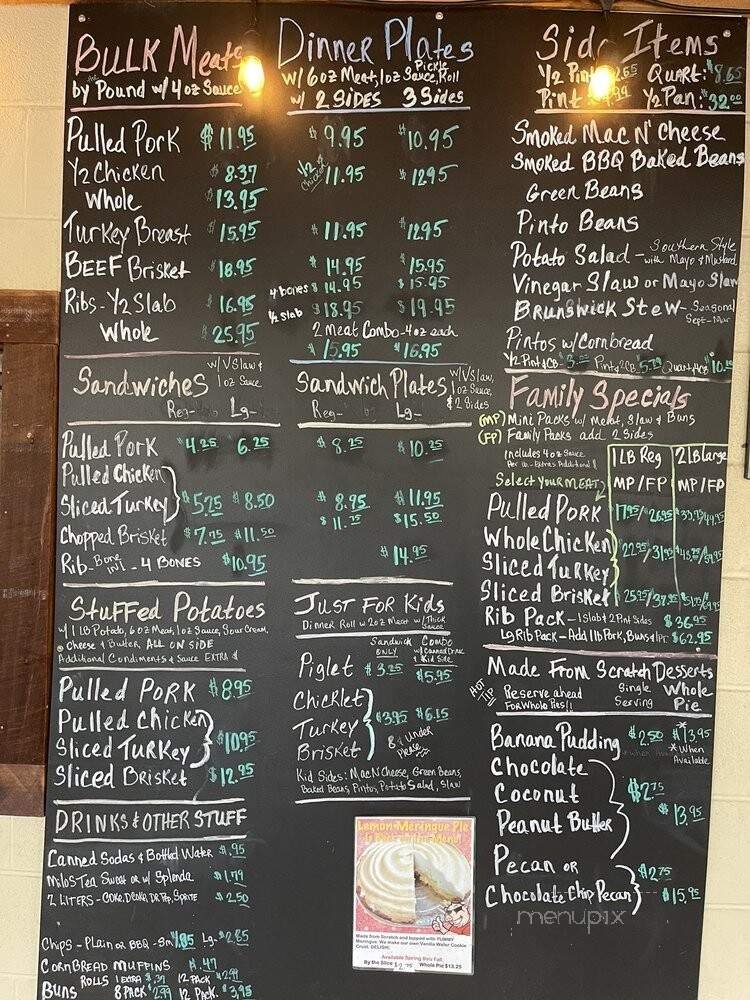 BULK Meats
by Pound w/ 4oz Sauce
Pulled Pork $11.95
1/2 Chicken $8.37
Whole $13.95
Turkey Breast $15.95
BEEF Brisket $18.95
Ribs - 1/2 Slab $16.95
Whole $25.95
Dinner Plates
w/ 6oz Meat, 1oz Sauce, Pickle Roll
w/ 2 SIDES 3 Sides
$9.95 $10.95
1/2 Chicken $11.95 $12.95
$11.95 $12.95
$14.95 $15.95
4 bones $14.95 $15.95
1/2 slab $18.95 $19.95
2 meat Combo - 4oz each
$15.95 $16.95
Side Items
1/2 Pint Quart: $8.65
Pint 1/2 Pan: $32.00
Smoked Mac N' Cheese
Smoked BBQ Baked Beans
Green Beans
Pinto Beans
Potato Salad - Southern Style with Mayo & Mustard
Vinegar Slaw or Mayo Slaw
Brunswick Stew - Seasonal
Pintos w/ Cornbread
Sandwiches w/ V Slaw & 1oz Sauce
Reg- Lg-
Pulled Pork $4.25 6.25
Pulled Chicken
Sliced Turkey $5.25 $8.50
Chopped Brisket $7.75 $11.50
Rib - Bone IN - 4 BONES $10.95
Sandwich Plates w/ V Slaw, 1oz Sauce, & 2 Sides
Reg- Lg-
$8.25 $10.25
$8.95 $11.95
$11.75 $15.50
$14.95
Family Specials
(MP) Mini Packs w/ Meat, Slaw & Buns
(FP) Family Packs add 2 Sides
Includes 4oz Sauce
Per lb - Extras Additional $
1 LB Reg 2 LB Large
Select your MEAT MP/FP MP/FP
Pulled Pork
Whole Chicken
Sliced Turkey
Sliced Brisket
Rib Pack - 1 Slab & 2 Pint Sides $36.95
Lg Rib Pack - Add 1lb Pork, Buns & $62.95
Stuffed Potatoes
w/ 1 LB Potato, 6oz Meat, 1oz Sauce, Sour Cream,
Cheese & Butter ALL ON SIDE
Additional Condiments & Sauce EXTRA $
Pulled Pork $8.95
Pulled Chicken
Sliced Turkey $10.95
Sliced Brisket $12.95
Just For Kids
Dinner Roll w/ 2oz Meat w/ Thick Sauce
Sandwich ONLY Combo w/ Canned Drink & Kid Side
Piglet $3.25 $5.95
Chicklet
Turkey $3.95 $6.15
Brisket 8 & Under Please
Kid Sides: Mac N Cheese, Green Beans,
Baked Beans, Pintos, Potato Salad, Slaw
Made From Scratch Desserts
HOT TIP Reserve ahead For Whole Pies!! Single Serving Whole Pie
Banana Pudding $2.50 *$13.95
*When Available
Chocolate
Coconut $2.75
Peanut Butter $13.95
Pecan or $2.75
Chocolate Chip Pecan $15.95
DRINKS & OTHER STUFF
Canned Sodas & Bottled Water $.95
Milos Tea Sweet or w/ Splenda $1.79
2 LITERS - COKE, D.COKE, DR.PEP, SPRITE $2.50
Chips - Plain or BBQ - Sm Lg- $2.85
Cornbread Muffins $.47
Rolls 1 EXTRA $.37 12 PACK $2.99
Buns 8 PACK $2.99 12 PACK. $3.95
Lemon Meringue Pie
Is Back on the Menu!
Made from Scratch and topped with YUMMY
Meringue. We make our own Vanilla Wafer Cookie
Crust. DELISH!
Available Spring thru Fall.
By the Slice $2.75 Whole Pie $13.25
menupix